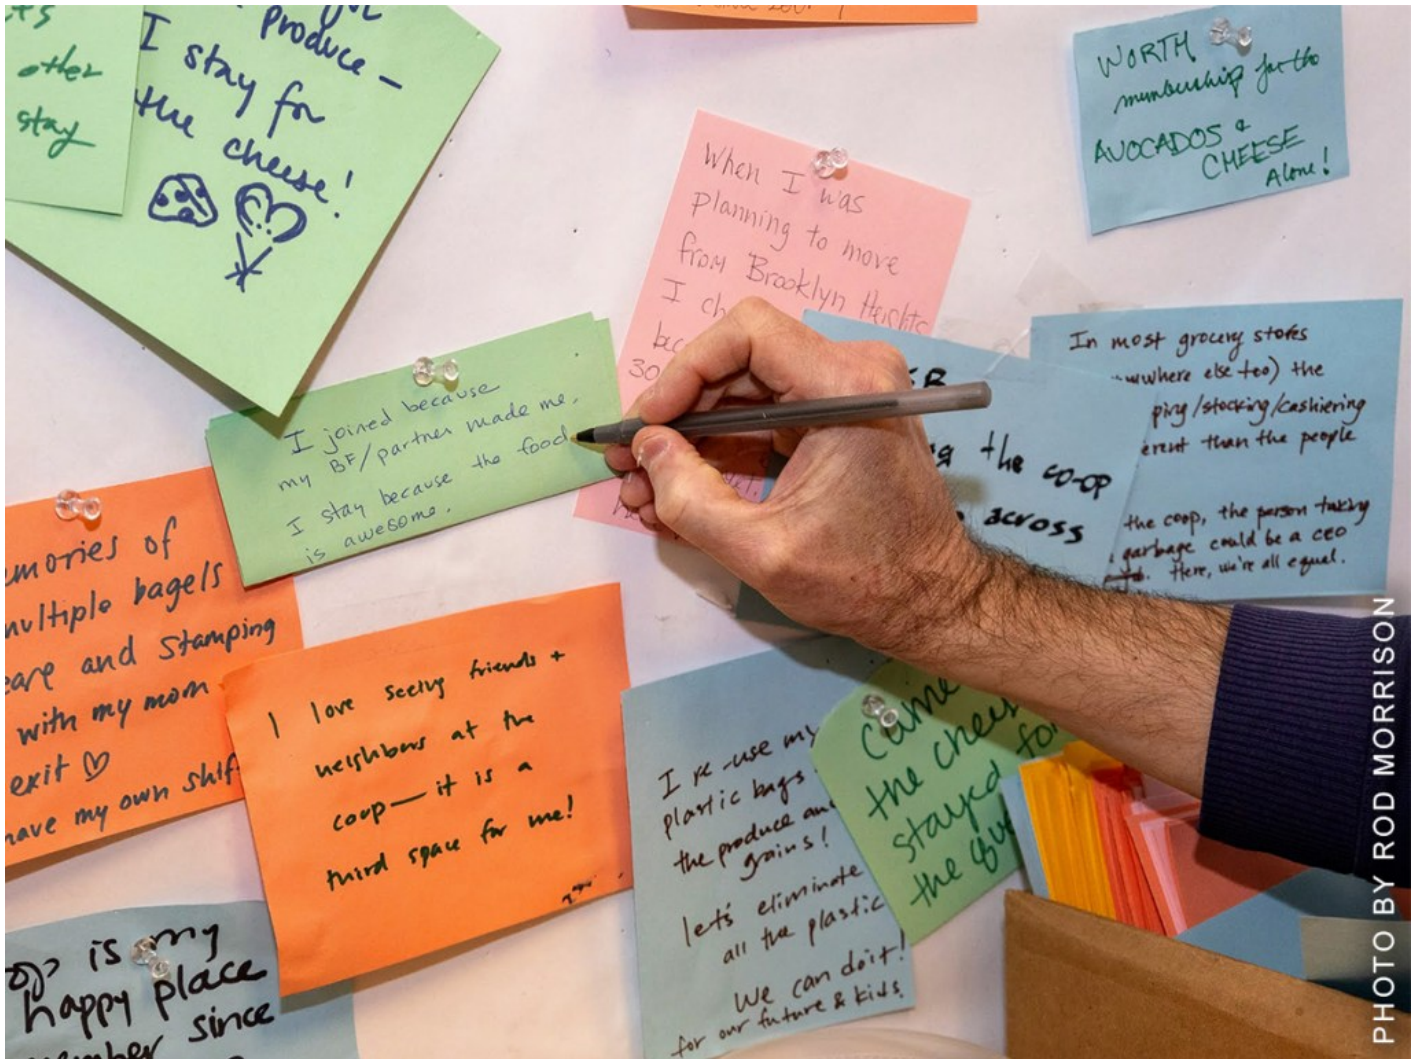 other
stay
produce –
I stay for
the cheese!
since 2001
WORTH
membership for the
AVOCADOS &
CHEESE
Alone!
When I was
planning to move
from Brooklyn Heights
I
30
I joined because
my BF/partner made me.
I stay because the food
is awesome.
the co-op
across
In most grocery stores
else too) the
/stocking/cashiering
than the people
the coop, the person taking
garbage could be a ceo
Here, we're all equal.
of
bagels
and stamping
with my mom
exit ♡
have my own
I love seeing friends +
neighbors at the
coop — it is a
third space for me!
I re-use my
plastic bags
the produce and
grains!
let's eliminate
all the plastic
We can do it!
for our future & kids.
came
the
stayed
the
is my
happy place
since
PHOTO BY ROD MORRISON